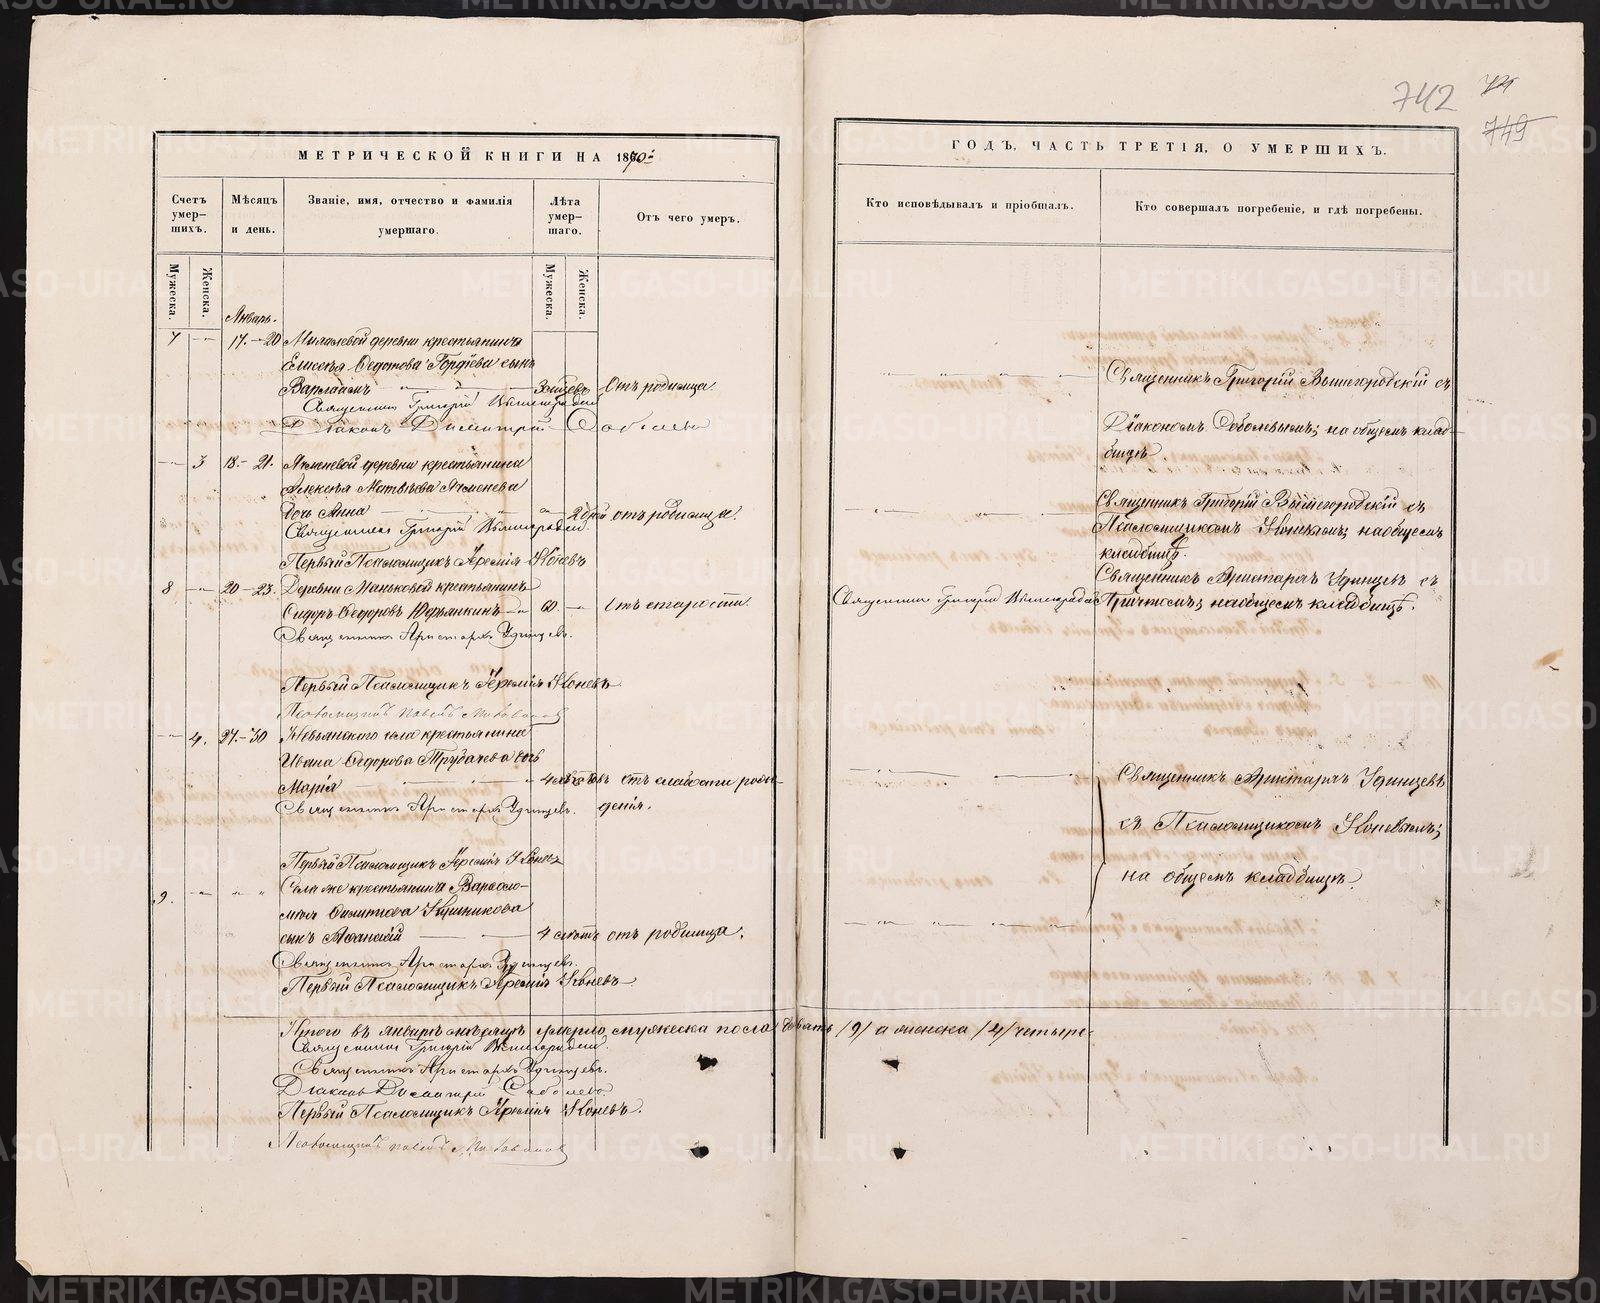 742
749
МЕТРИЧЕСКОЙ КНИГИ НА 1870й
ГОДЪ, ЧАСТЬ ТРЕТІЯ, О УМЕРШИХЪ.
Счетъ умер-шихъ.
Мѣсяцъ и день.
Званіе, имя, отчество и фамилія умершаго.
Лѣта умер-шаго.
Отъ чего умеръ.
Кто исповѣдывалъ и пріобщалъ.
Кто совершалъ погребеніе, и гдѣ погребены.
Мужеска.
Женска.
Мужеска.
Женска.
Январь.
7 17.-20 деревни крестьянина
Елисея Ѳедотова Гордѣева сынъ
Варлаамъ Отъ родимца.
Священникъ Григорій
Діаконъ Димитрій Соболевъ
Священникъ Григорій Вышегородскій съ
Діакономъ Соболевымъ; на общемъ клад-
бищѣ.
3 18.-21. деревни крестьянина
Алексѣя Матвѣева Ячменева
дочь Анна 2 дней отъ родимца.
Священникъ Григорій
Первый Псаломщикъ Іеремія Коневъ
Священникъ Григорій Вышегородскій съ
Псаломщикомъ Коневымъ; на общемъ
кладбищѣ.
8 20-23. Деревни Маньковой крестьянинъ
Сидоръ Ѳедоровъ 60. Отъ старости.
Священникъ Аристархъ Удинцевъ.
Первый Псаломщикъ Іеремія Коневъ
Псаломщикъ Павелъ
Священникъ Григорій
Священникъ Аристархъ Удинцевъ съ
Причтомъ; на общемъ кладбищѣ.
4. 27.-30 Невьянскаго села крестьянина
Ивана Ѳедорова Трубачева дочь
Марія отъ слабости рож-
денія.
Священникъ Аристархъ Удинцевъ.
Первый Псаломщикъ Іеремія Коневъ
Священникъ Аристархъ Удинцевъ
съ Псаломщикомъ Коневымъ;
на общемъ кладбищѣ.
9. Села же крестьянина Варѳоло-
мея
сынъ Аѳанасій 4 отъ родимца.
Священникъ Аристархъ Удинцевъ.
Первый Псаломщикъ Іеремія Коневъ
Итого въ январѣ мѣсяцѣ умерло мужеска пола девять /9/ а женска /4/ четыре
Священникъ Григорій
Священникъ Аристархъ Удинцевъ.
Діаконъ Димитрій Соболевъ.
Первый Псаломщикъ Іеремія Коневъ.
Псаломщикъ Павелъ
METRIKI.GASO-URAL.RU